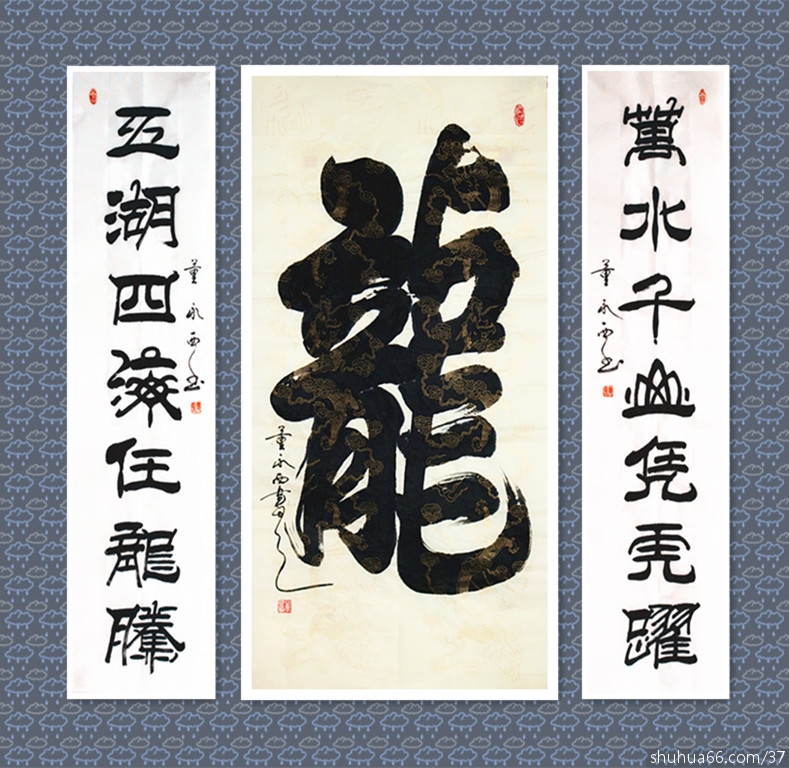 萬水千山凭虎躍
董永西书
龍
董永西書
五湖四海任龍騰
董永西书
shuhua66.com/37